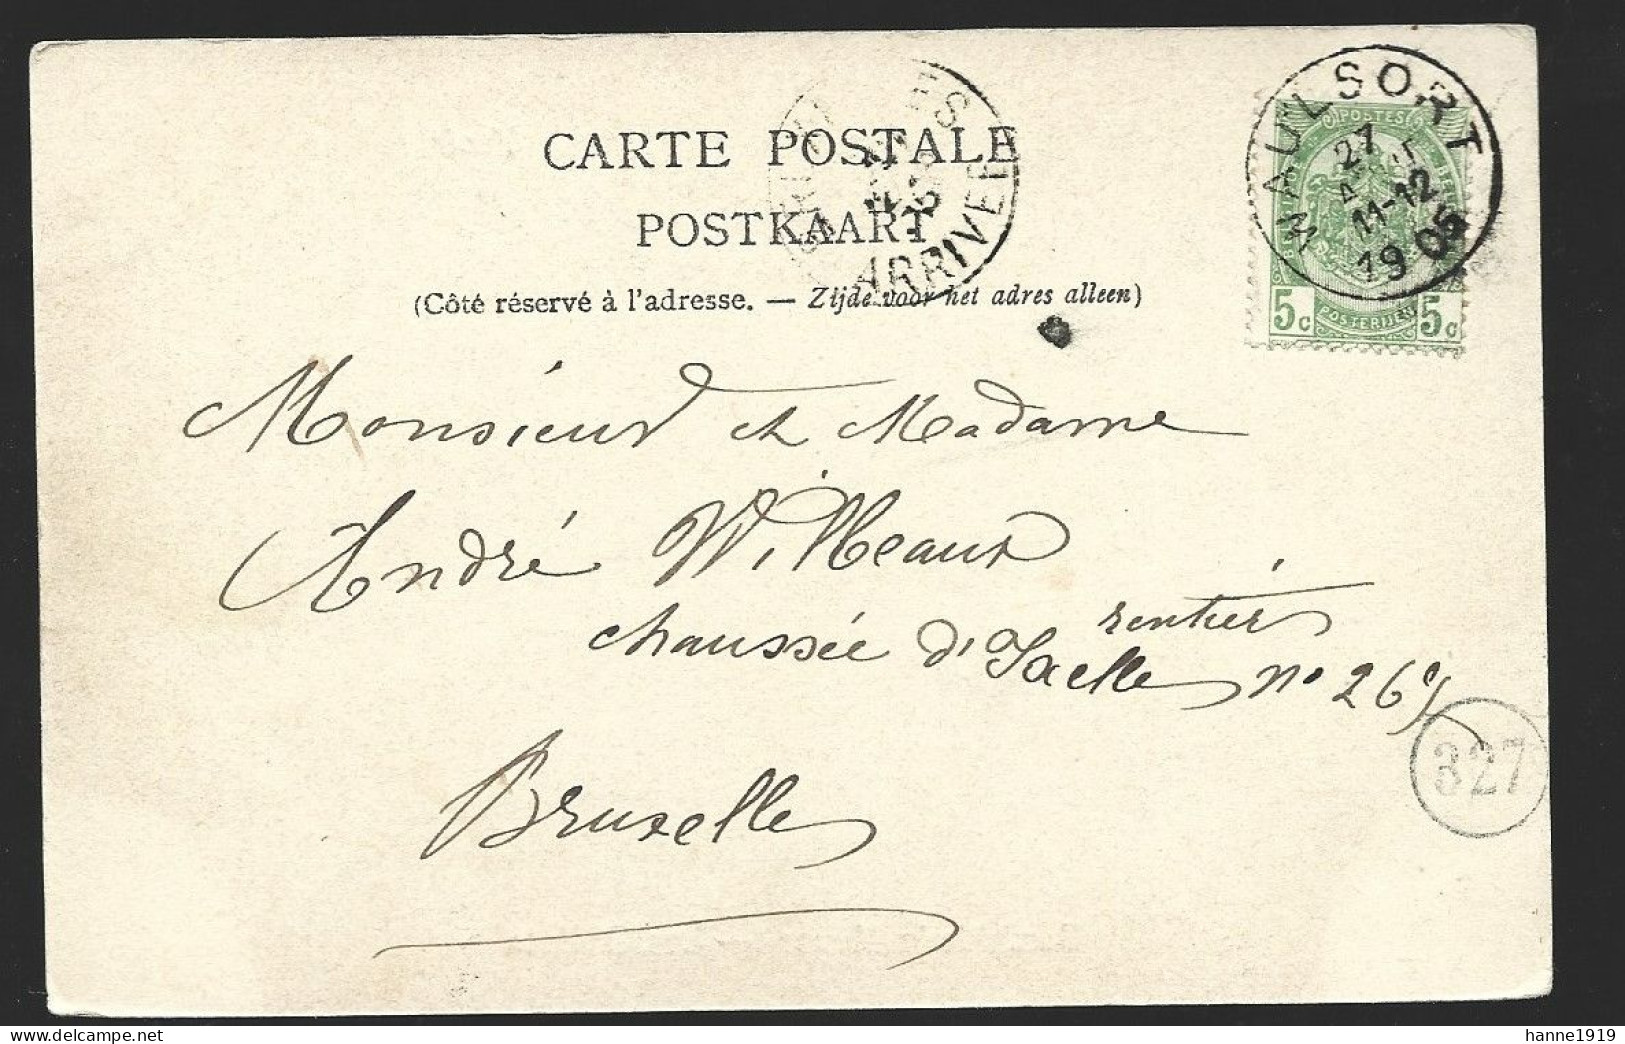 CARTE POSTALE
POSTKAART
(Côté réservé à l'adresse. — Zijde voor het adres alleen)
ARRIVEE
WAULSORT
27
AOUT
11-12
19 05
POSTES
5c POSTERIJEN 5c
Monsieur et Madame
André Willeaux
rentier
chaussée d'Ixelles no 265
Bruxelles
327
hanne1919